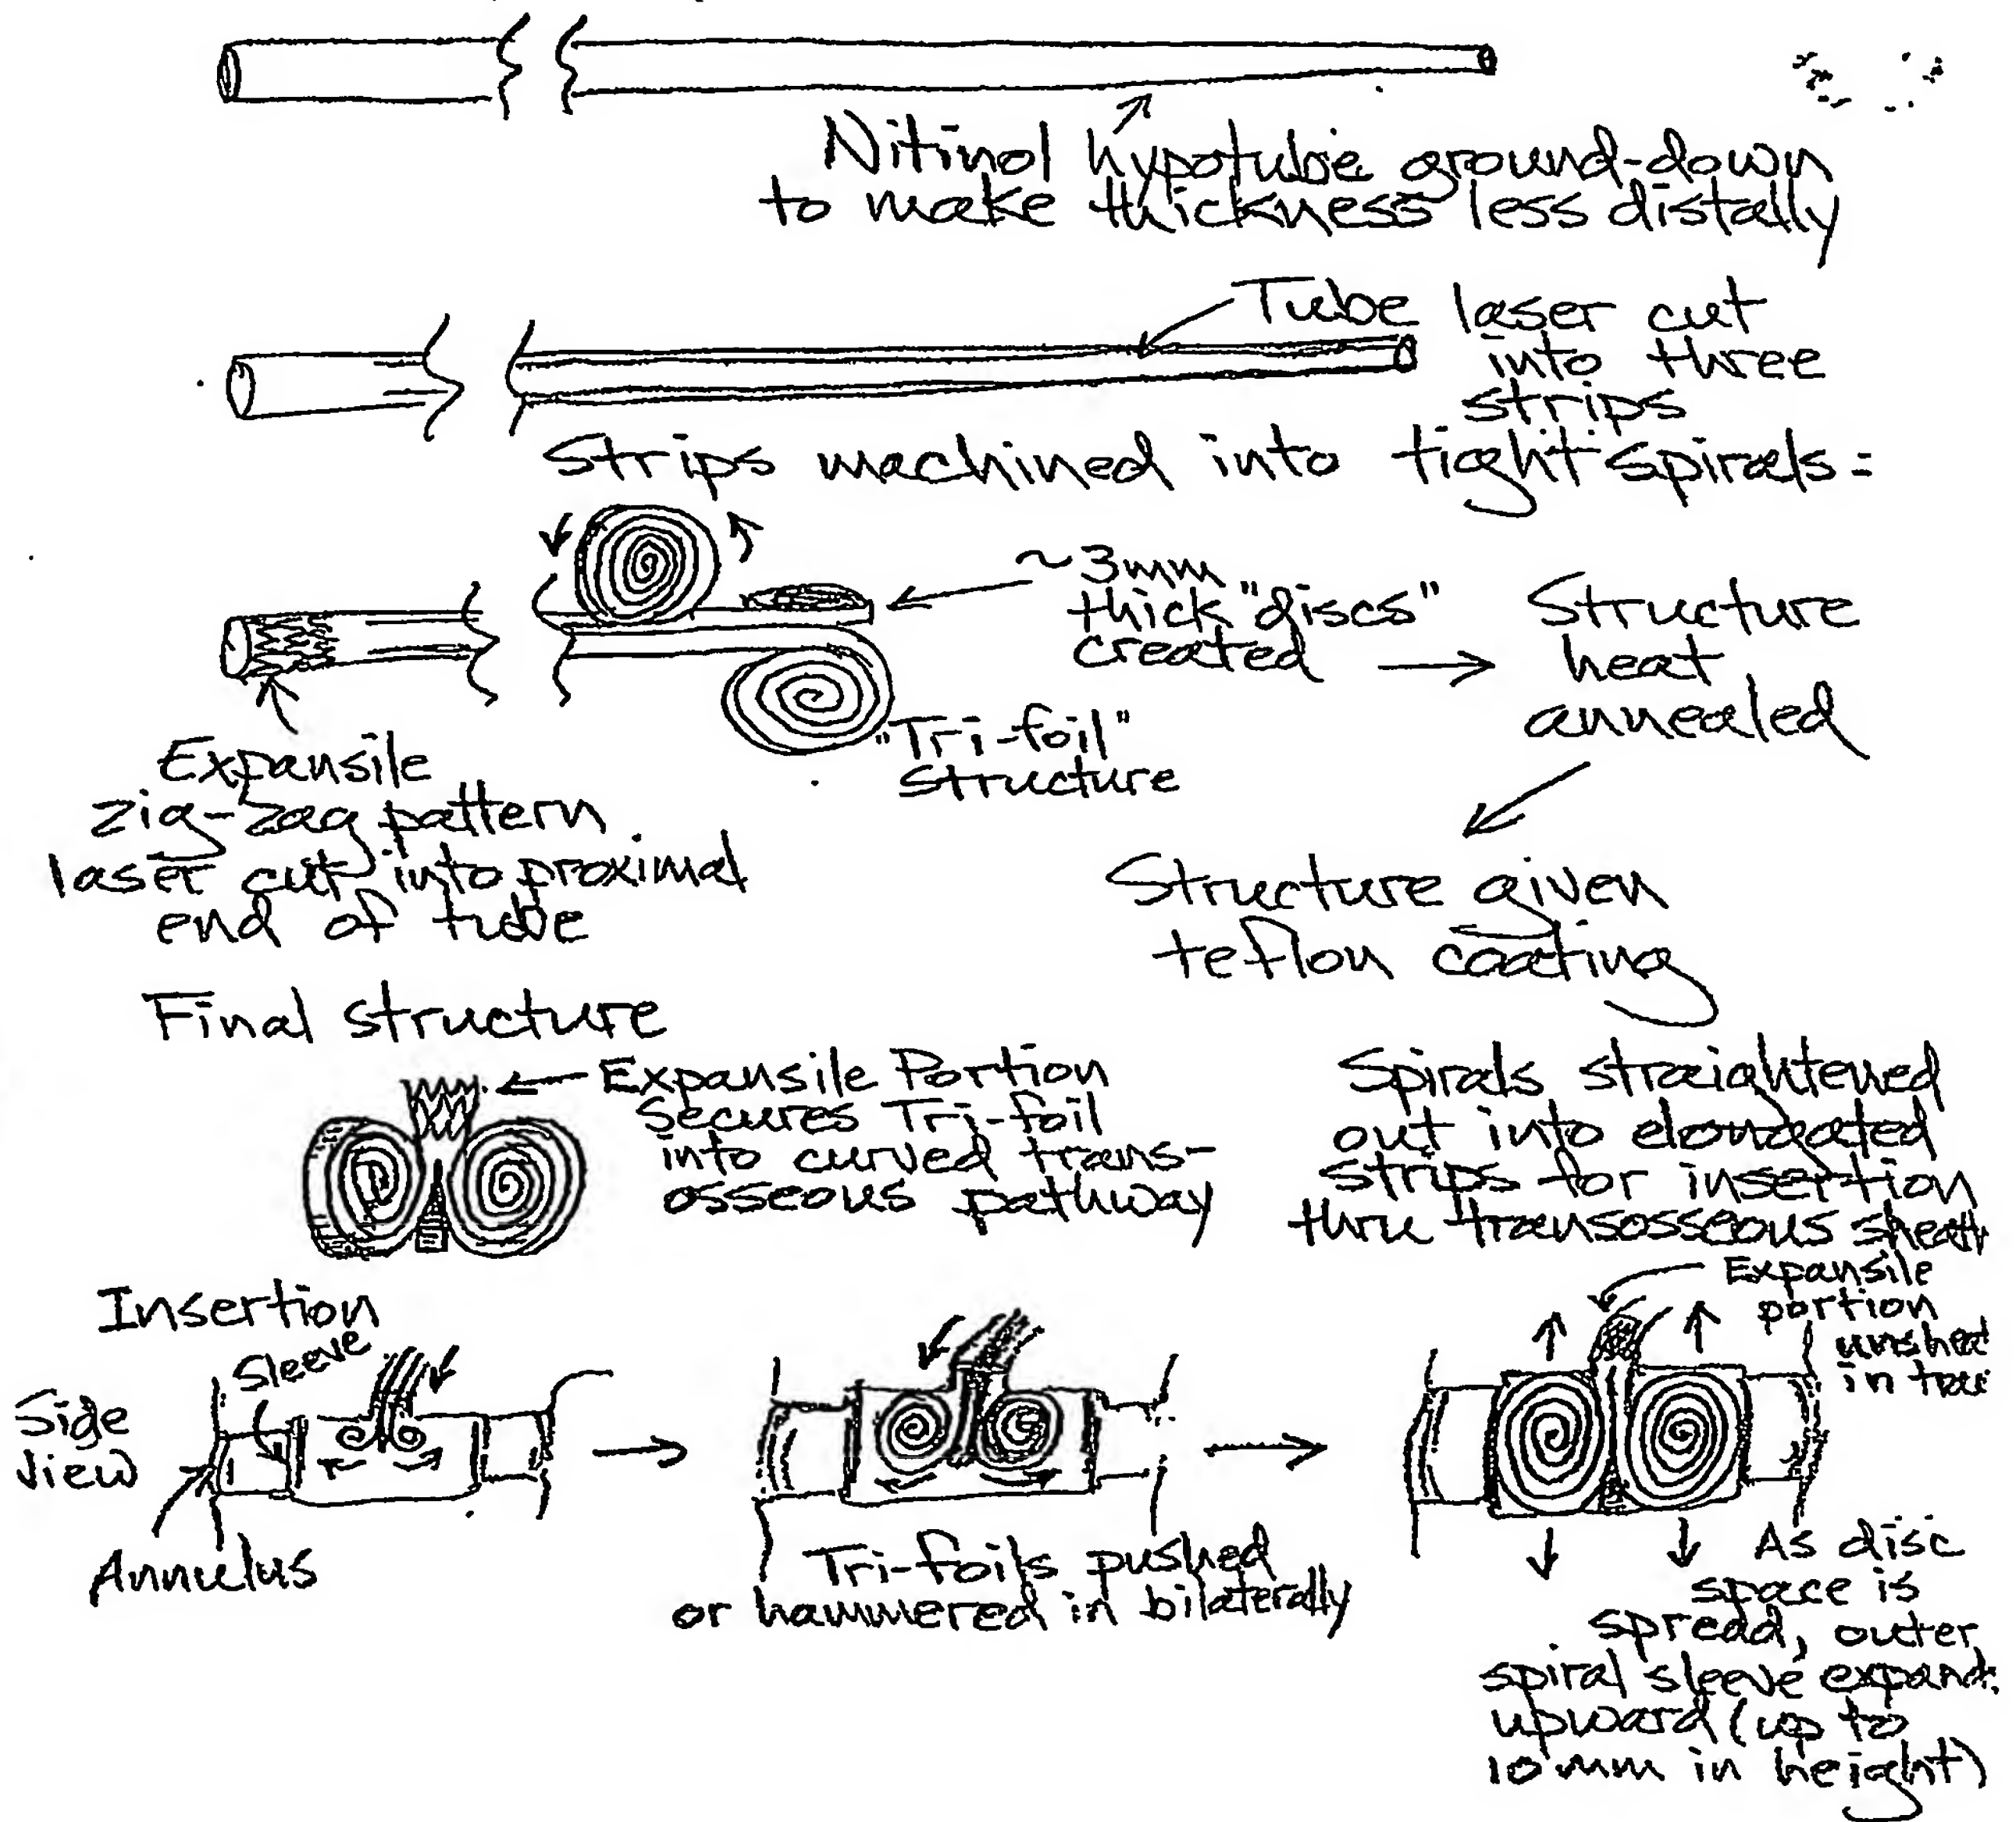 Nitinol hypotube ground-down
to make thickness less distally
Tube laser cut
into three
strips
Strips machined into tight spirals=
~3mm
thick "discs"
created
Structure
heat
annealed
"Tri-foil"
structure
Expansile
zig-zag pattern
laser cut into proximal
end of tube
Structure given
teflon coating
Final structure
Expansile Portion
secures Tri-foil
into curved trans-
osseous pathway
Spirals straightened
out into elongated
strips for insertion
thru transosseous sheath
Insertion
Sleeve
Side
View
Annulus
Tri-foils pushed
or hammered in bilaterally
Expansile
portion
in
As disc
space is
spread, outer
spiral sleeve expand
upward (up to
10 mm in height)